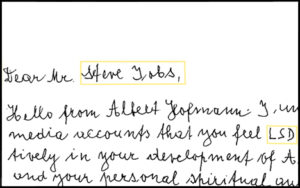 Dear Mr. Steve Jobs,
Hello from Albert Hofmann. I un
media accounts that you feel LSD
tively in your development of A
and your personal spiritual qu